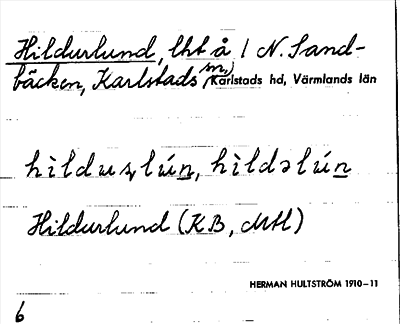 Hildurlund, lht å 1 N. Sand-
bäcken, Karlstads sn, Karlstads hd, Värmlands län
hìlduʂlún, hìldəlún
Hildurlund (KB, MH)
HERMAN HULTSTRÖM 1910–11
6